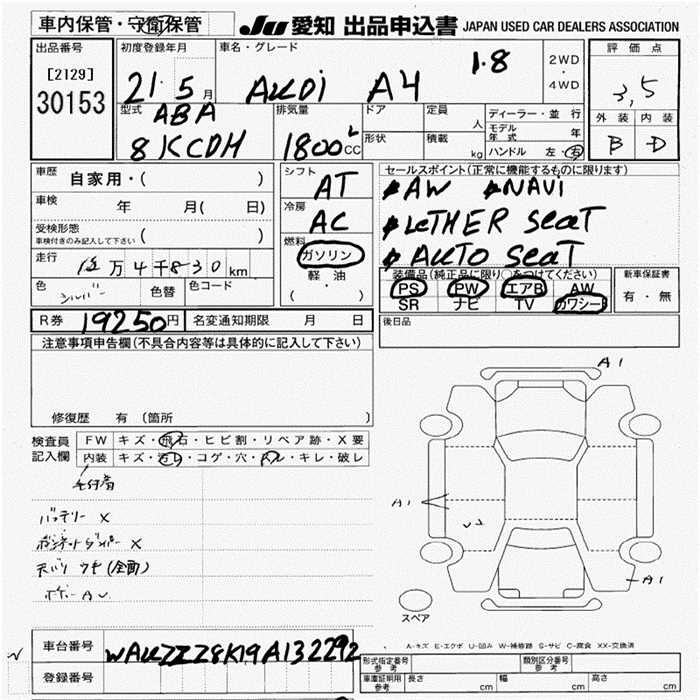 車内保管・守衛保管
JU 愛知 出品申込書 JAPAN USED CAR DEALERS ASSOCIATION
出品番号
[2129]
30153
初度登録年月
21. 5月
車名・グレード
AUDI A4 1.8
2WD
・
4WD
評価点
3,5
外装 内装
B D
型式
ABA
8KCDH
排気量
1800cc
ドア
形状
定員 人
積載 kg
ディーラー・並行
モデル年式 年
ハンドル 左・右
車歴 自家用・( )
車検 年 月( 日)
受検形態
車検付きのみ記入して下さい ( )
走行 万4千830km
色 シルバー 色替 色コード
シフト
AT
冷房
AC
燃料
ガソリン
軽油
( ・ )
セールスポイント(正常に機能するものに限ります)
AW NAVi
LeTHER SeaT
AUTO SeaT
装備品(純正品に限り○をつけてください)
PS PW エアB AW
SR ナビ TV カワシート
新車保証書
有・無
R券 19250円 名変通知期限 月 日
後日品
注意事項申告欄(不具合内容等は具体的に記入して下さい)
修復歴 有 (箇所
検査員
記入欄
FW キズ・飛石・ヒビ割・リペア跡・X要
内装 キズ・汚レ・コゲ・穴・スレ・キレ・破レ
バッテリー X
ボンネットダンパー X
天バリ ウキ(全面)
ボデー A U
A1
A1
A1
スペア
A-キズ E-エクボ U-凹み W-補修跡 S-サビ C-腐食 XX-交換済
車台番号 WAUZZZ8K19A132292
登録番号
形式指定番号
参考
類別区分番号
参考
車庫証明用
参考
長さ cm 幅 cm 高さ cm